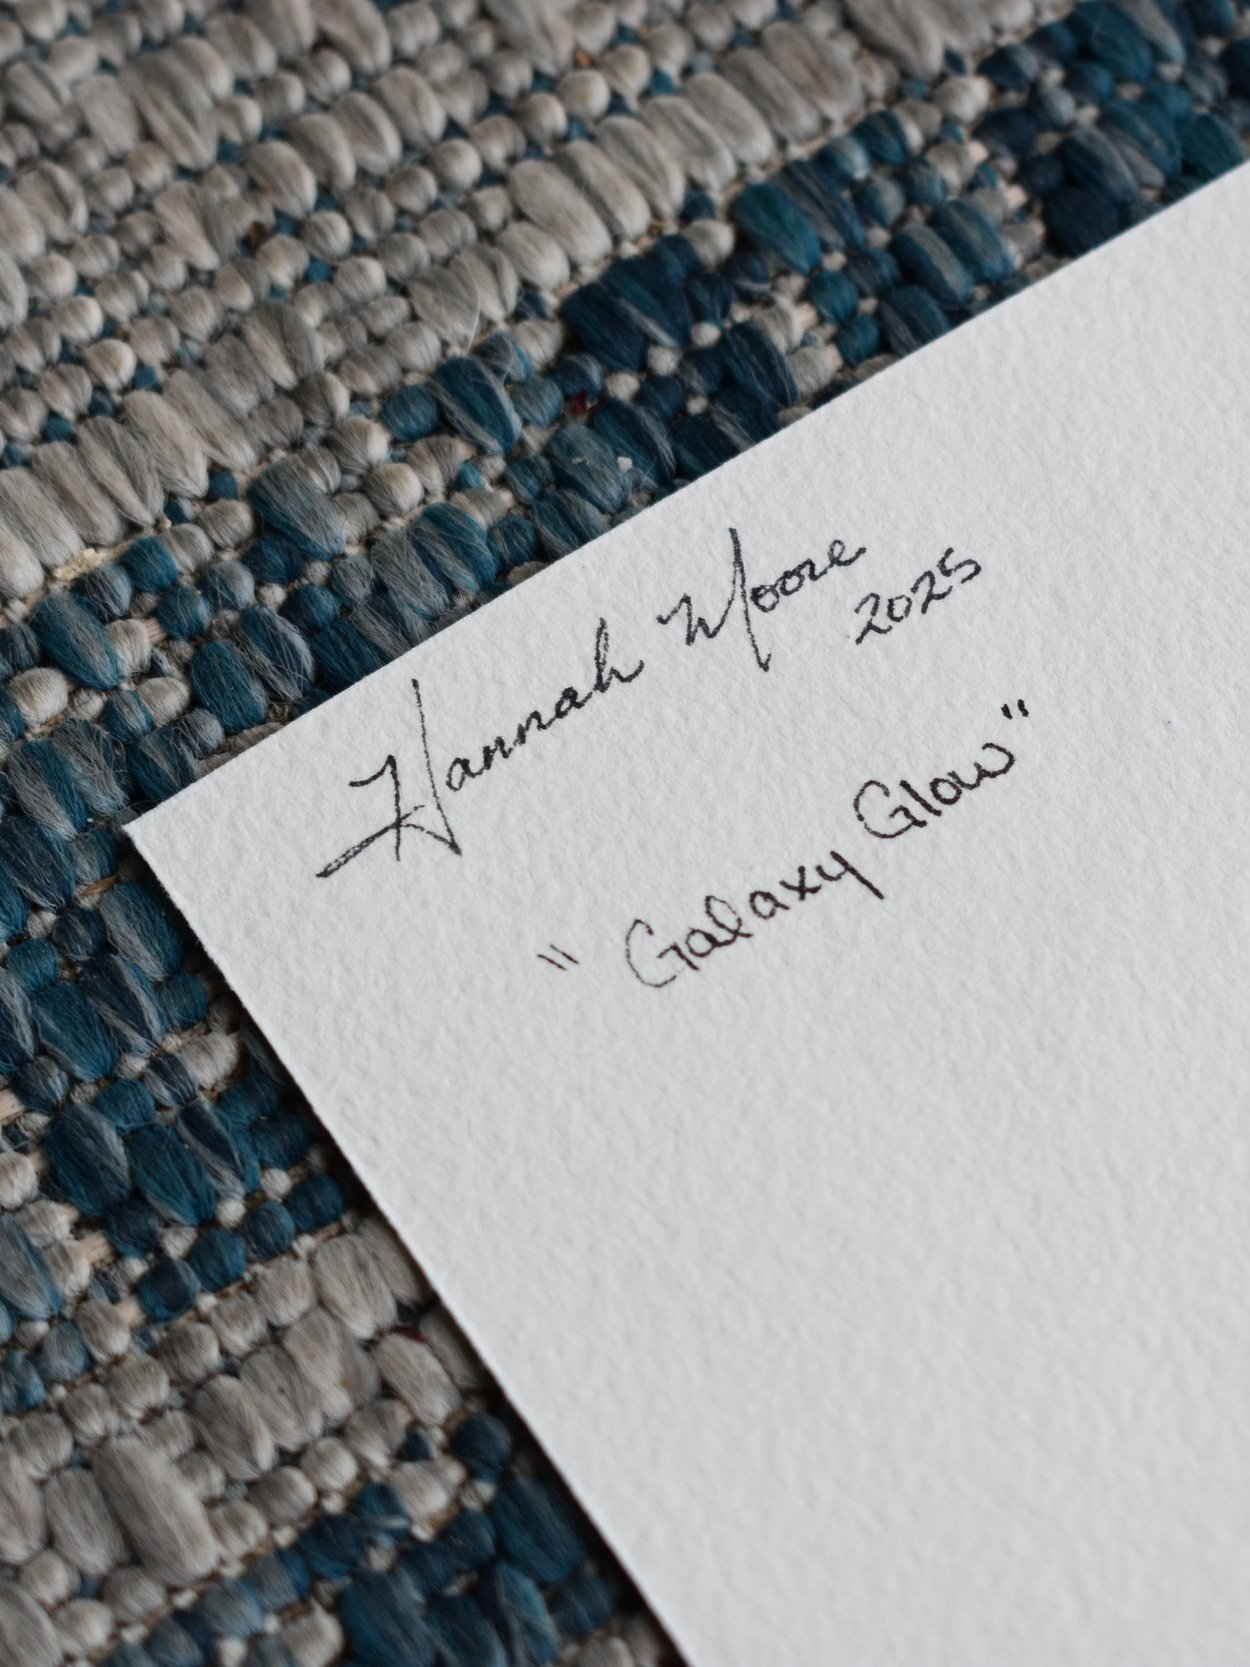 Hannah Moore
2025
"Galaxy Glow"